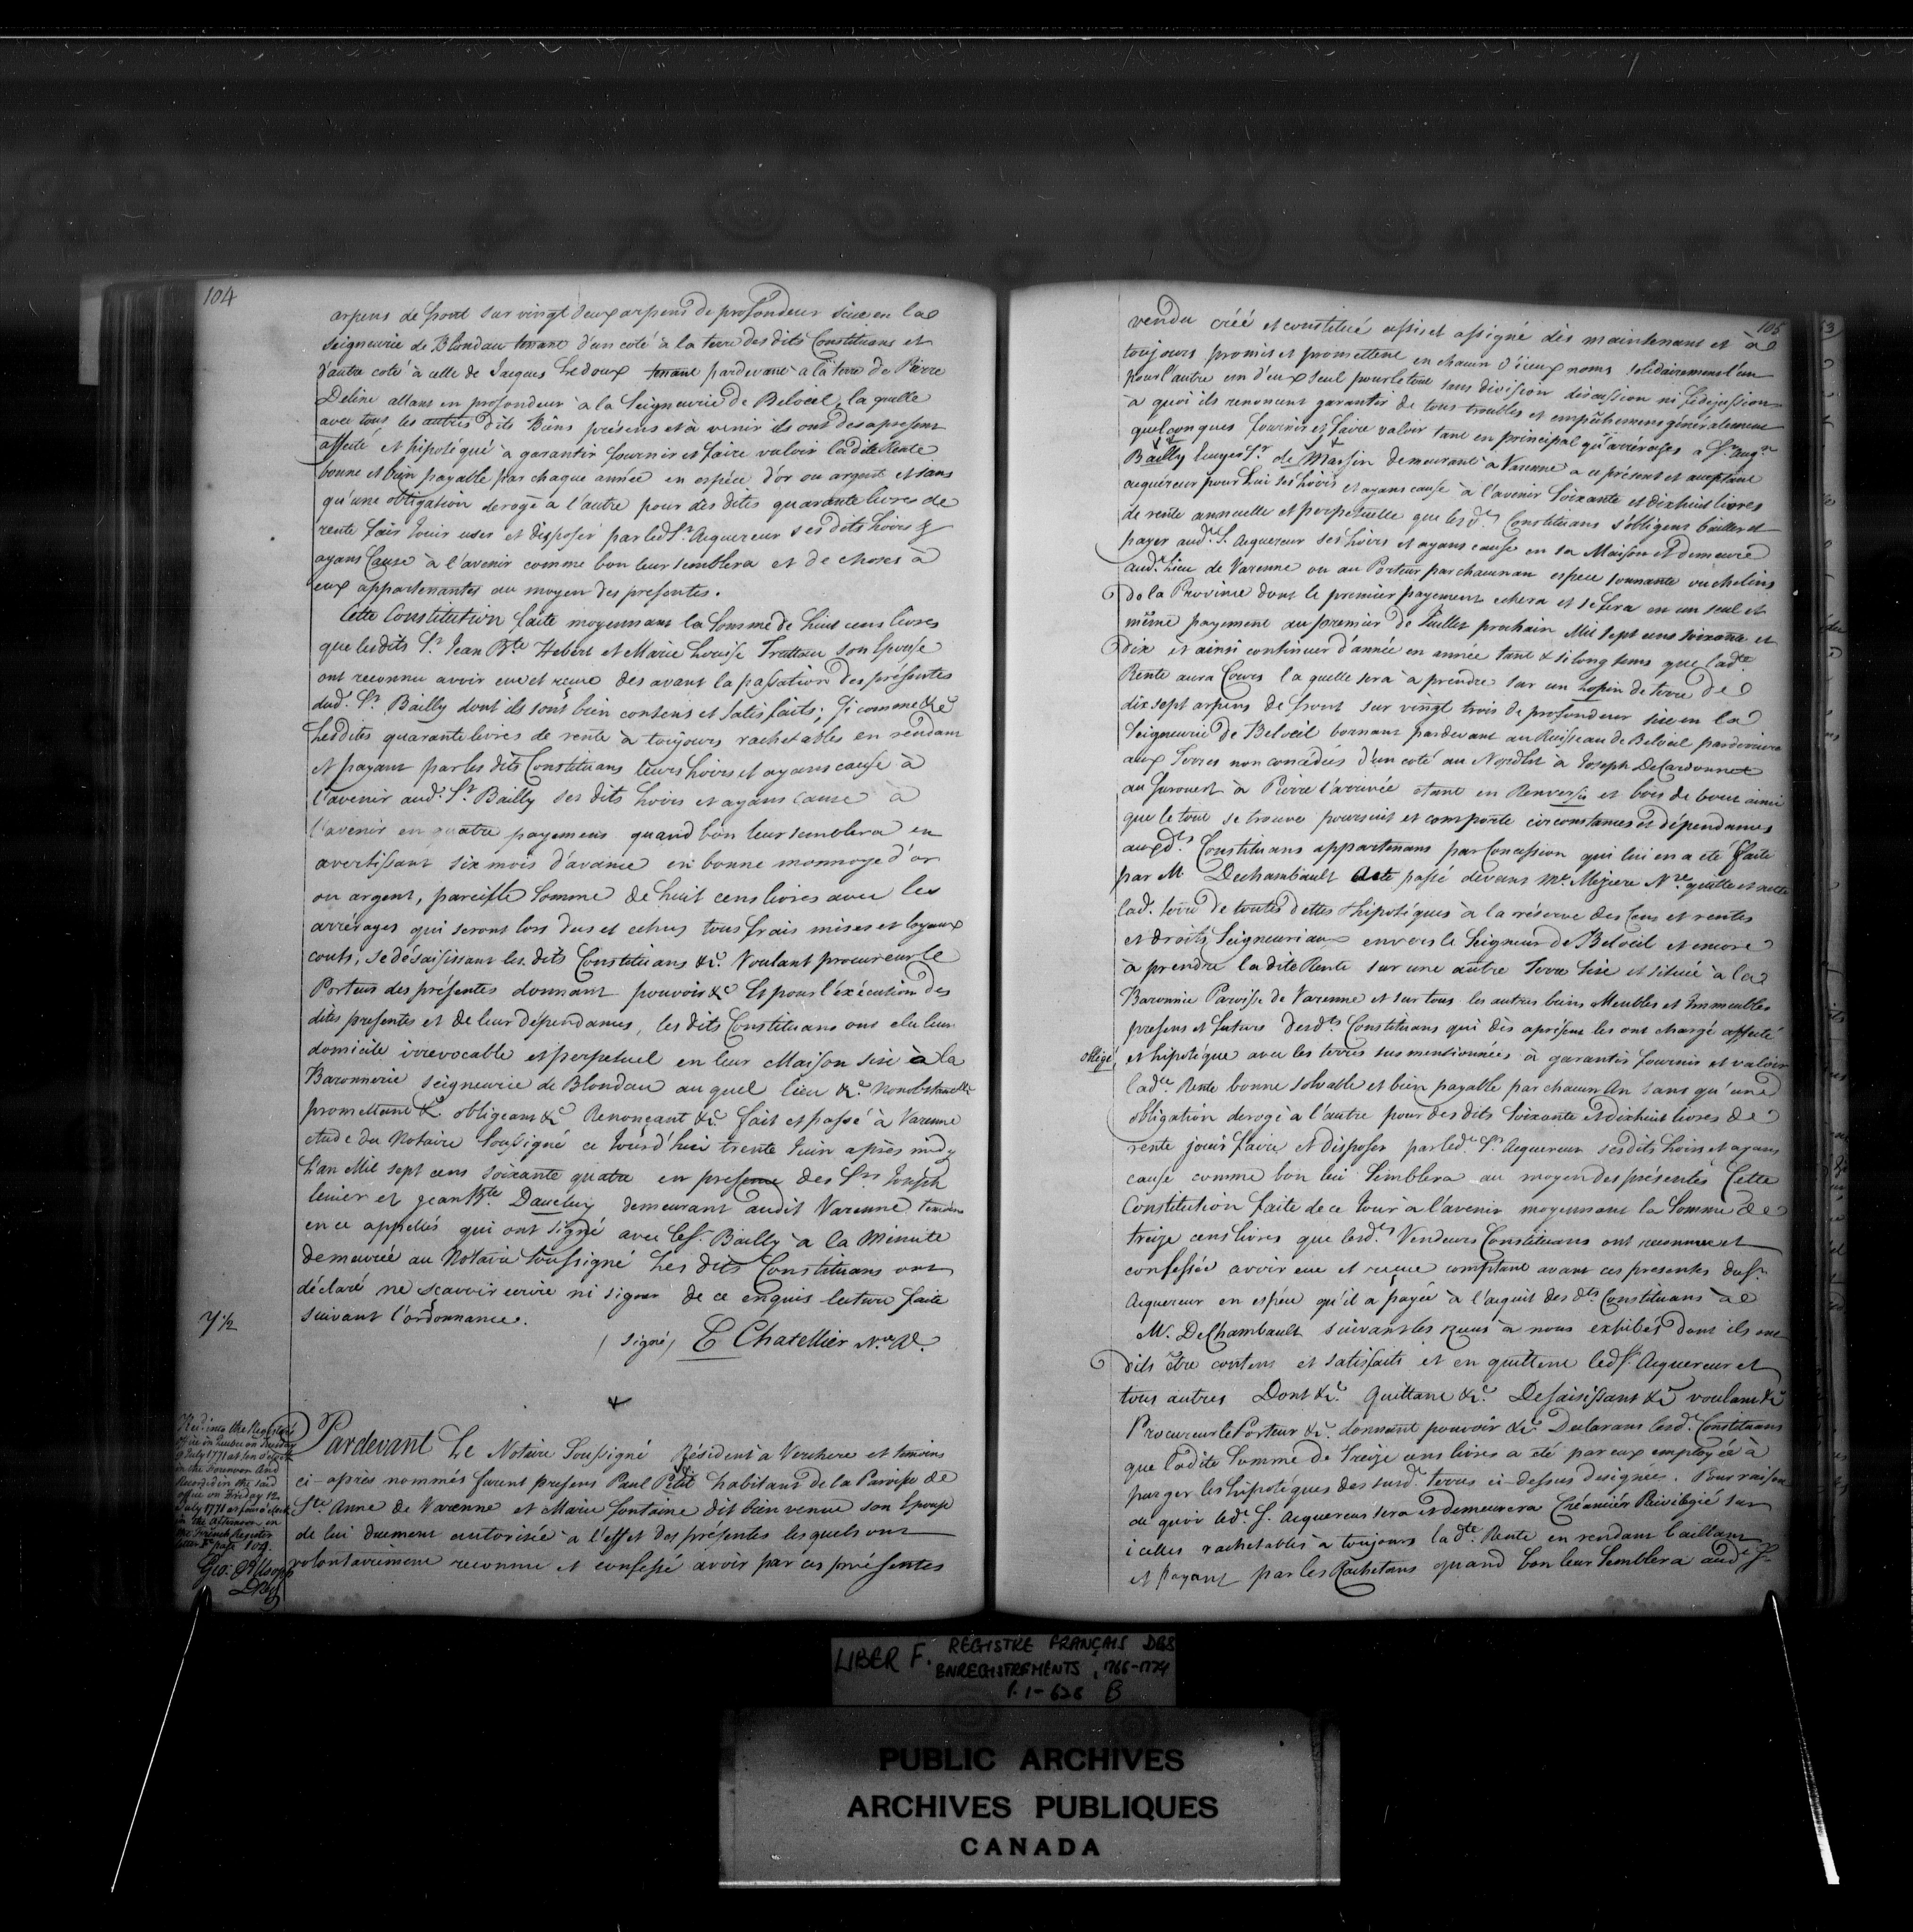 104
arpens de front sur vingt deux arpens de profondeur sise en la
Seigneurie de Blondau tenant d'un coté à la terre des dits Constituans et
d'autre coté à celle de Jacques Ledoux tenant pardevant à la terre de Pierre
Deline allant en profondeur à la Seigneurie de Beloeil, la quelle
avec tous les autres dits Biens présens et à venir ils ont des apresent
affecté et hipotéqué a garantir fournir et faire valoir la dite Rente
bonne et bien payable par chaque année en espéce d'or ou argent et sans
qu'une obligation deroge a l'autre pour des dits quarante livres de
rente fair Jouir user et disposer par led Sr. Acquereur ses dits hoirs &
ayans Cause à l'avenir comme bon leur semblera et de choses à
eux appartenantes au moyen des presentes.
Cette Constitution faite moyennant la Somme de huit cens livres
que lesdits Sr. Jean Bte. Hebert et Marie Louise Truttau son Epouse
ont reconnu avoir eue et reçue des avant la passation des présentes
dud. Sr. Bailly dont ils sont bien contens et satisfaits; Si comme &c
Lesdites quarante livres de rente à toujours rachetables en rendant
et payant par les dits Constituans leurs hoirs et ayans cause à
l'avenir aud. Sr. Bailly ses dits hoirs et ayans cause à
l'avenir en quatre payemens quand bon leur semblera en
avertissant six mois d'avance en bonne monnoye d'or
ou argent, pareille somme de huit cens livres avec les
arrérages qui seront lors dus et echus tous frais mises et loyaux
couts, se désaisissant les dits Constituans &c. Voulant procureur le
Porteur des présentes donnant pouvoir &c Et pour l'éxécution des
dites presentes et de leur dépendances, les dits Constituans ont elu leur
domicile irrevocable et perpetuel en leur Maison sise à la
Baronnerie seigneurie de Blondau auquel lieu &c. Nonobstant &c
promettant &c. obligeant &c Renonçant &c. fait et passé à Varenne
etude du Notaire Soussigné ce Jourd'hui trente Juin après midy
L'an Mil sept cens soixante quatre en presence des Srs. Joseph
lenier et Jean Bte. Daveluy demeurant audit Varenne temoins
en ce appellés qui ont signé avec le Sr. Bailly à la Minute
demeurée au Notaire Soussigné Les dits Constituans ont
déclaré ne sçavoir ecrire ni signer de ce enquis lecture faite
suivant l'ordonnance.
7½
(signé) C Chatellier Nre. R.
Recd. into the Register
office in Quebec on Tuesday
9 July 1771 at ten o'clock
in the Forenoon And
Recorded in the said
office on Friday 12
July 1771 at four o'clock
in the Afternoon in
the French Register
letter F. page 104.
Geo: Allsopp
DReg
Pardevant Le Notaire Soussigné résident à Verchere et temoins
ci-après nommés furent presens Paul Petit habitant de la Paroisse de
Ste. Anne de Varenne et Marie Fontaine dit bien venue son Epouse
de lui duement autorisée à l'effet des présentes lesquels ont
volontairement reconnu et confessé avoir par ces présentes
105
vendu créé et constitué assis et assigné dès maintenant et à
toujours promis et promettent en chacun d'iceux noms solidairement l'un
pour l'autre un d'eux seul pour le tout sans division discussion ni fidéjussion
à quoi ils renoncent garantir de tous troubles et empêchemens généralement
quelconques fournir et faire valoir tant en principal qu'arrérages a Sr. Augn.
Bailly Ecuyer Sr. de Massin demeurant à Varenne a ce présent et acceptant
acquéreur pour Lui ses hoirs et ayans cause à l'avenir Soixante et dixhuit livres
de rente annuelle et perpetuelle que les ds. Constituans s'obligent bailler et
payer aud. S. Acquereur ses hoirs et ayans cause en sa Maison et demeure
aud. Lieu de Varenne ou au Porteur par chacun an espece sonnante ou chelins
de la Province dont le premier payement echera et se fera en un seul et
même payement au premier de Juillet prochain Mil sept cens soixante et
dix et ainsi continuer d'année en année tant & si long tems que lade.
Rente aura Cours la quelle sera à prendre sur un Lopin de terre de
dix sept arpens de front sur vingt trois de profondeur sise en la
Seigneurie de Beloeil bornant pardevant au Ruisseau de Beloeil parderriere
aux Terres non concedées d'un coté au Nordest à Joseph DeCardonnet
au Surouest à Pierre l'arrivée etant en Renversis et bois de bout ainsi
que le tout se trouve poursuit et comporte circonstances et dépendances
auxds. Constituans appartenans par Concession qui lui en a eté faite
par M Dechambault Acte passé devant Me. Meziere Nre. quitte et nette
lad. terre de toutes dettes & hipotéques à la réserve des Cens et rentes
et droits Seigneuriaux envers le Seigneur de Beloeil et encore
à prendre ladite Rente sur une autre Terre Sise et située à la
Baronnie Paroisse de Varenne et sur tous les autres biens Meubles et Immeubles
presens et futurs desds. Constituans qui dès apresent les ont chargé affecté
obligé, et hipotéqué avec les terres susmentionnées à garantir fournir et valoir
lade. Rente bonne solvable et bien payable par chacun An sans qu'une
obligation deroge à l'autre pour des dits Soixante et dixhuit livres de
rente jouir faire et Disposer par led. Sr. Acquereur ses dits hoirs et ayans
cause comme bon lui Semblera au moyen des présentes Cette
Constitution faite de ce Jour à l'avenir moyennant la Somme de
Treize cens livres que lesd. Vendeurs Constituans ont reconnue et
confessée avoir eue et reçue comptant avant ces presentes du Sr.
Acquereur en espéce qu'il a payée à l'acquit des ds. Constituans à
M. DeChambault suivant les reçus à nous exhibés dont ils ont
dits être contens et satisfaits et en quittent led Sr. Acquereur et
tous autres Dont &c. Quittant &c. Desaisissant &c voulant &c
Procureur le Porteur &c. donnant pouvoir &c. Declarans lesd. Constituans
que ladite Somme de Treize cens livres a eté par eux employée à
purger les hipotéques des susd. terres ci-dessus designées. Pour raison
de quoi led. S. Acquereur sera et demeurera Créancier Privilegié sur
icelles rachetables à toujours lad. Rente en rendant baillant
et payant par les Rachetans quand bon leur Semblera aud. Sr.
LIBER F. REGISTRE FRANÇAIS DES
ENREGISTREMENTS, 1766-1774
P. 1-628 B
PUBLIC ARCHIVES
ARCHIVES PUBLIQUES
CANADA